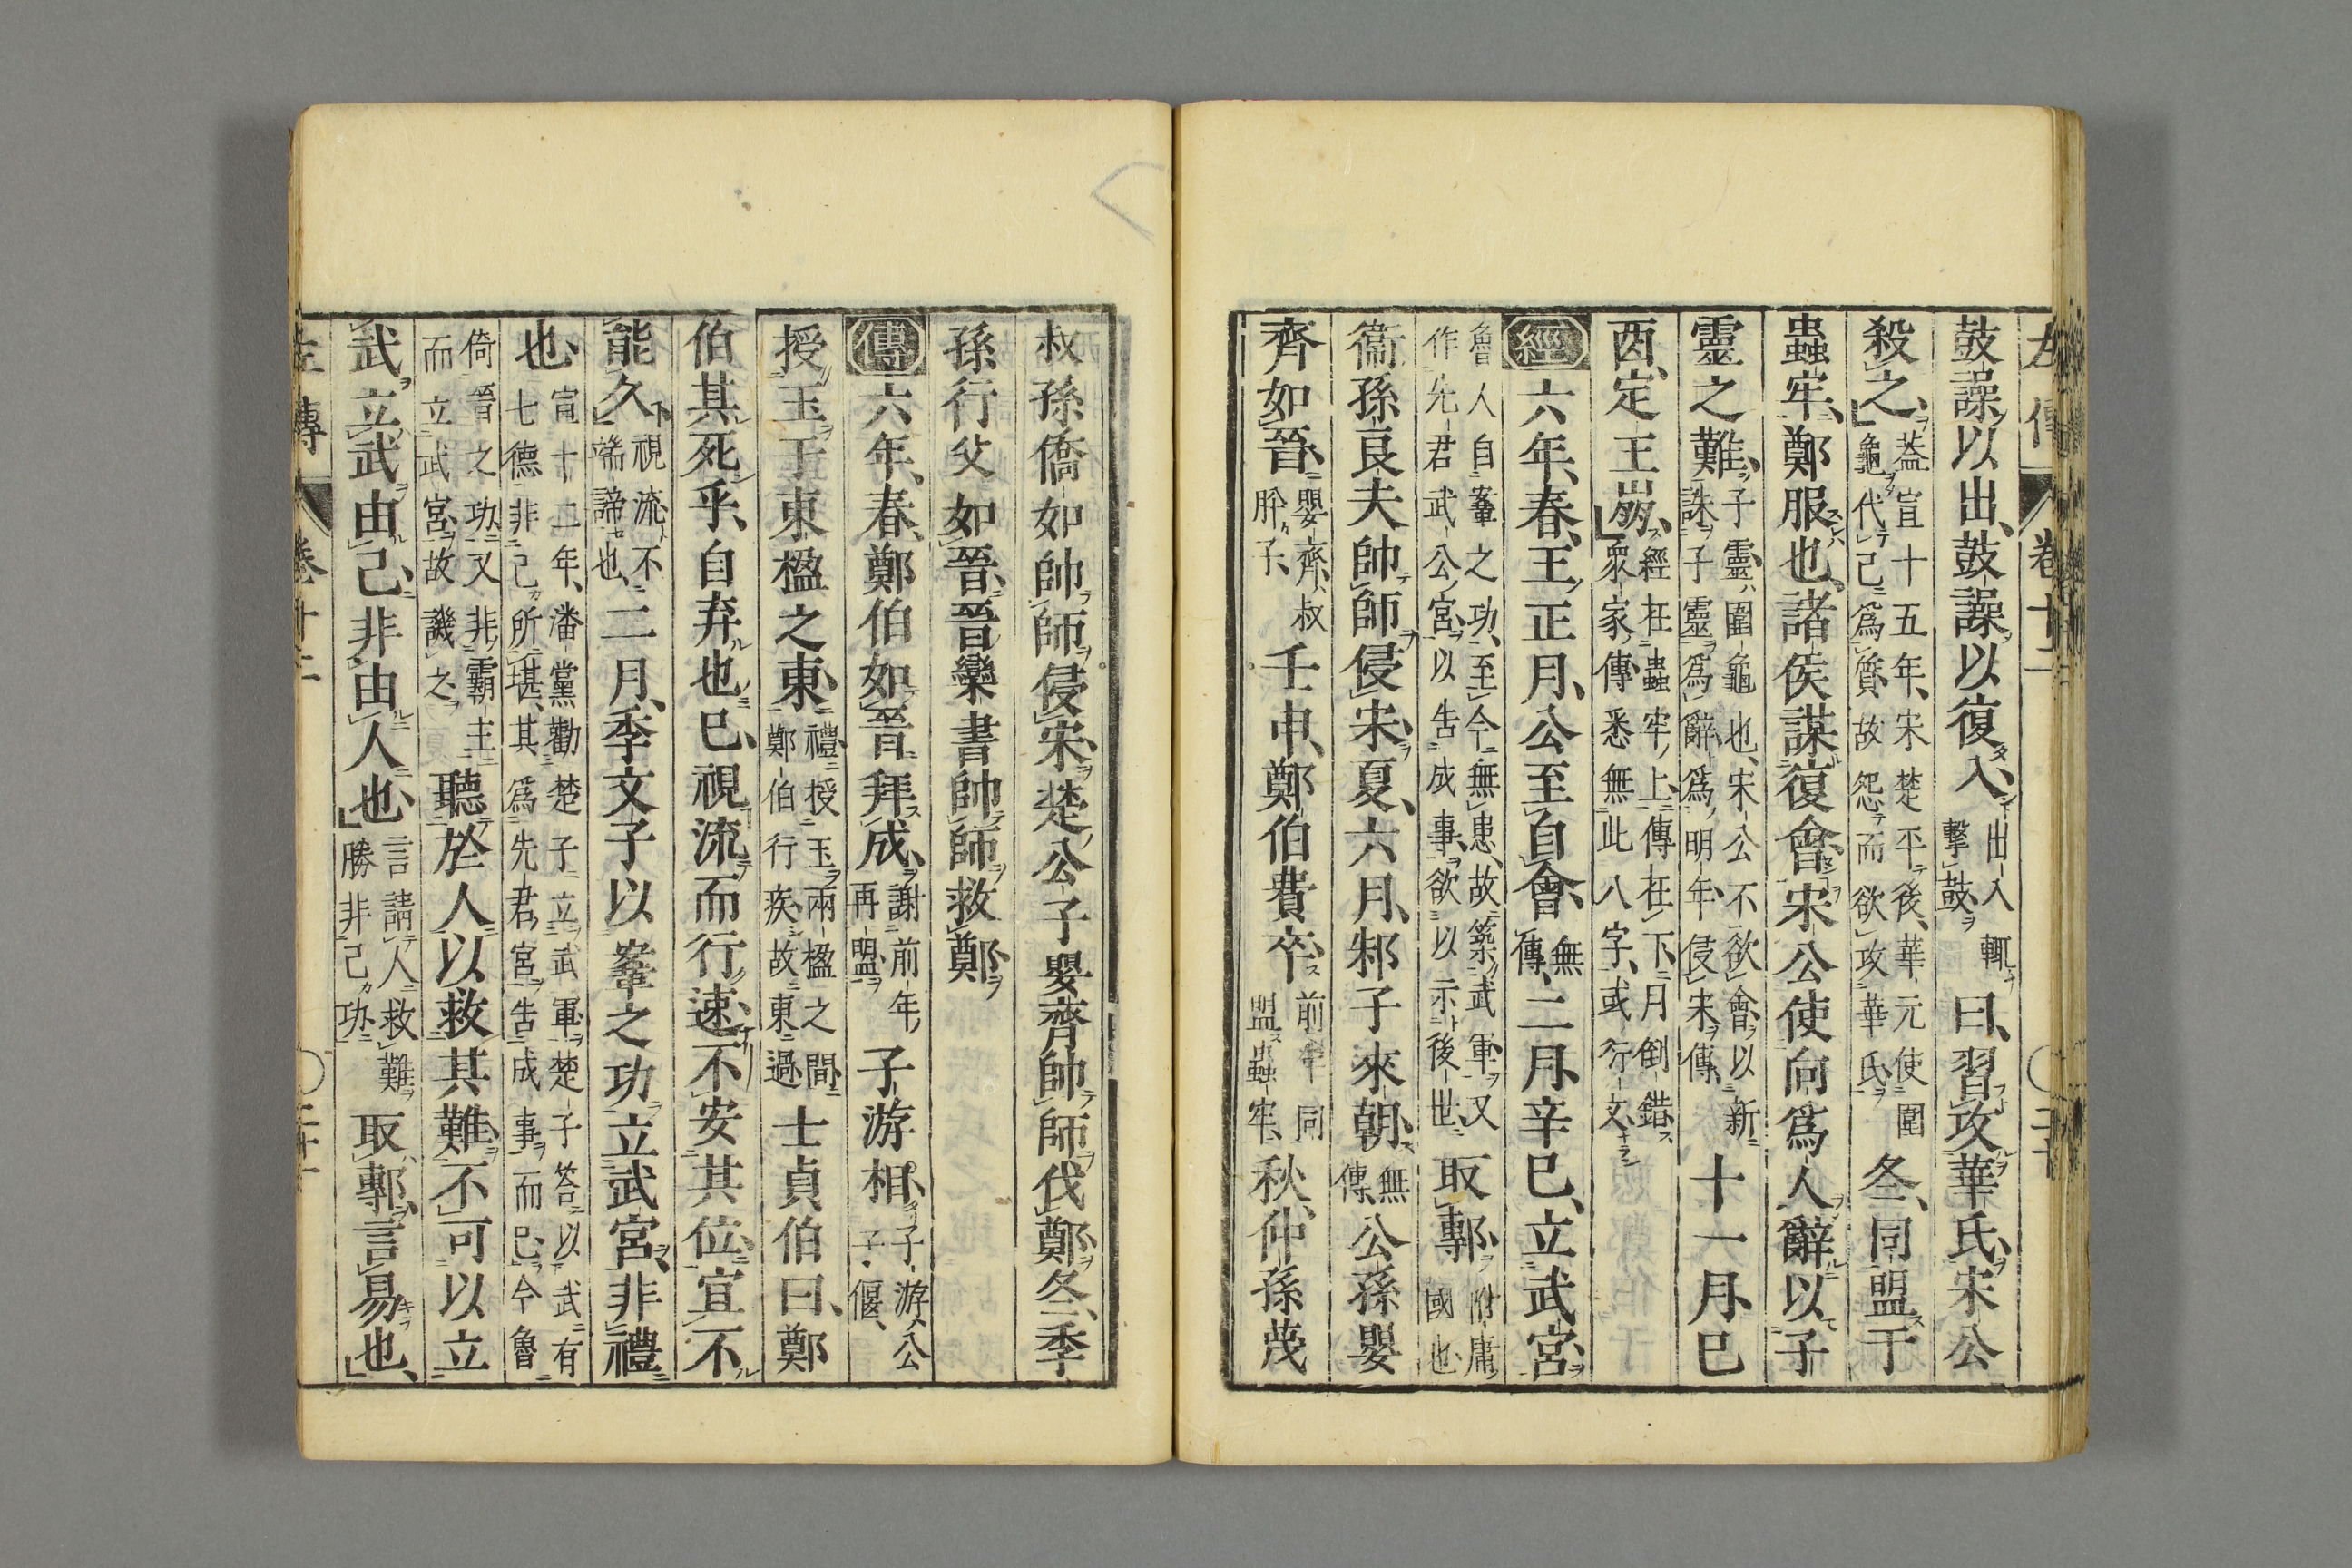 左傳 卷十二 〇二十
鼓譟以出、鼓譟以復入、出入輒擊鼓曰、習攻華氏、宋公
殺之、葢宣十五年、宋楚平後、華元使圍龜代己爲質、故怨而欲攻華氏冬、同盟于
蟲牢、鄭服也、諸侯謀復會、宋公使向爲人辭以子
靈之難、子靈、圍龜也、宋公不欲會、以新誅子靈爲辭、爲明年侵宋傳、十一月、己
酉、定王崩、經在蟲牢上、傳在下、月倒錯、眾家傳悉無此八字、或衍文、
經六年、春、王正月、公至自會、無傳、二月、辛巳、立武宮、
魯人自鞌之功、至今無患、故築武軍、又作先君武公宮、以告成事、欲以示後世、取鄟、附庸國也
衞孫良夫帥師侵宋、夏、六月、邾子來朝、無傳、公孫嬰
齊如晉、嬰齊、叔肸子、壬申、鄭伯費卒、前年同盟蟲牢、秋、仲孫蔑
叔孫僑如帥師侵宋、楚公子嬰齊帥師伐鄭、冬、季
孫行父如晉、晉欒書帥師救鄭、
傳六年、春、鄭伯如晉拜成、謝前年再盟子游相、子游、公子偃、
授玉于東楹之東、禮、授玉兩楹之間、鄭伯行疾、故東過士貞伯曰、鄭
伯其死乎、自弃也已、視流而行速、不安其位、宜不
能久、視流、不端諦也、二月、季文子以鞌之功立武宮、非禮
也、宣十二年、潘黨勸楚子立武軍、楚子答以武有七德、非己所堪、其爲先君宮、告成事而已、今魯
倚晉之功、又非霸主、而立武宮、故譏之、聽於人以救其難、不可以立
武、立武由己、非由人也、言請人救難、勝非己功、取鄟、言易也、
左傳 卷十二 〇二十一